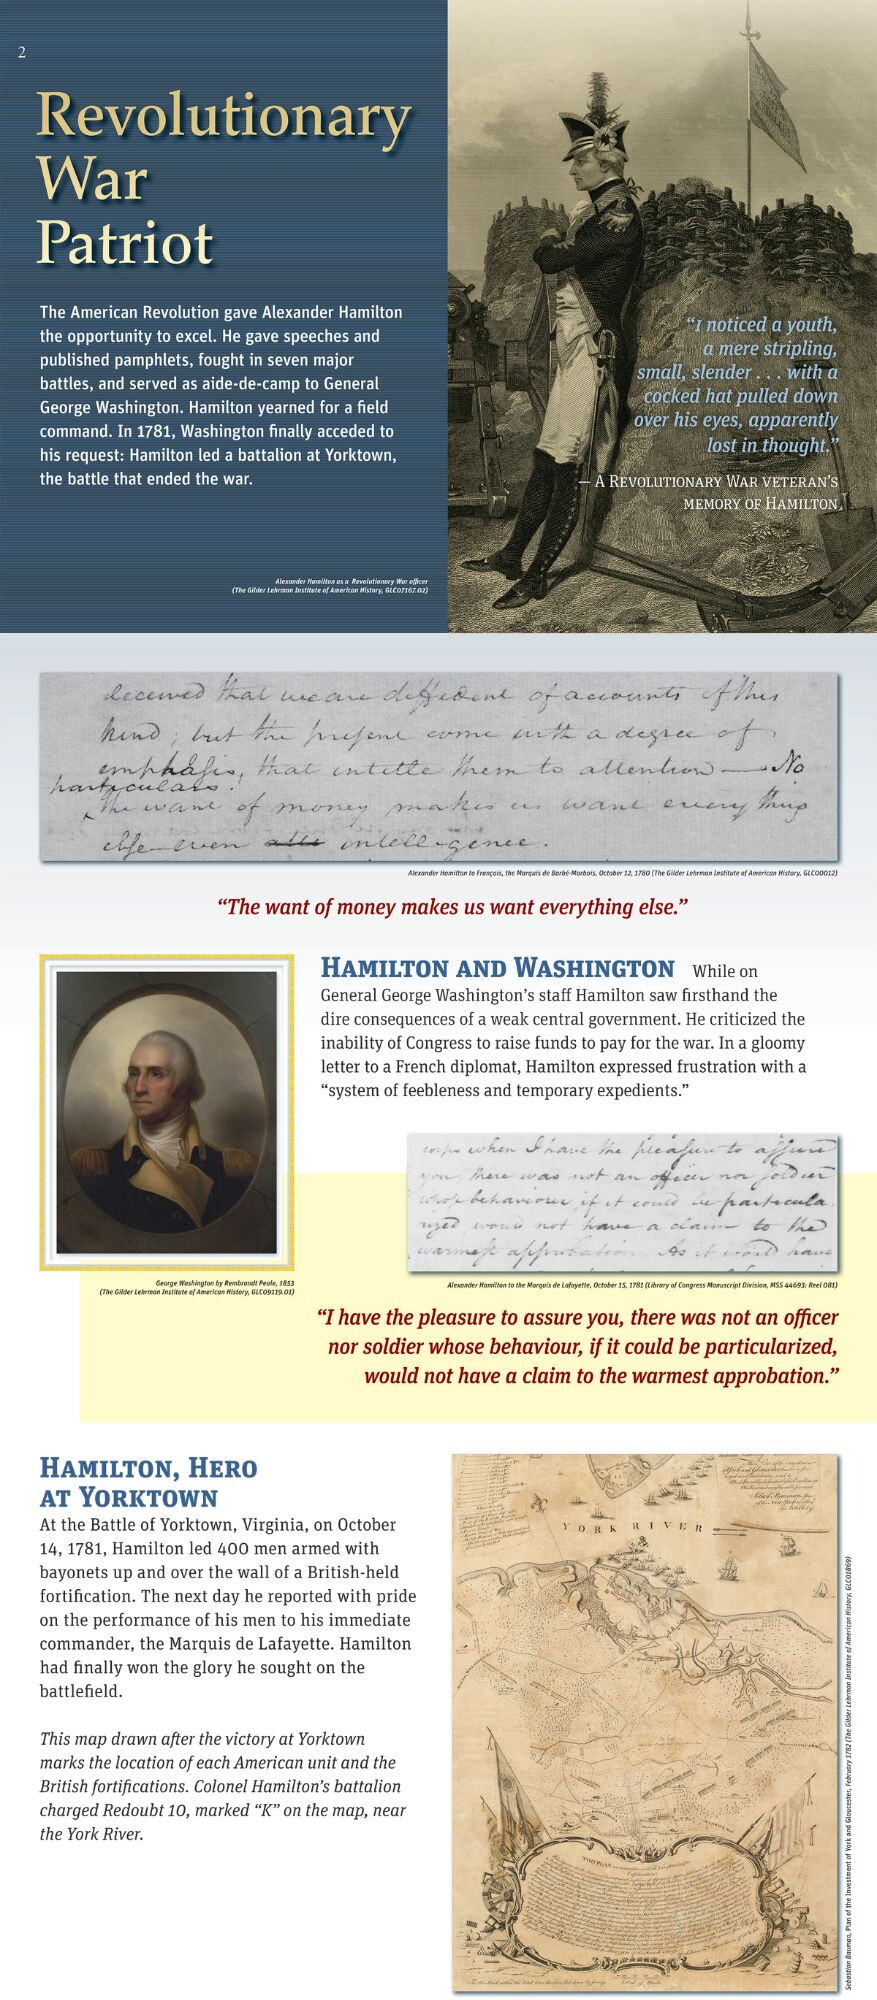 2
Revolutionary
War
Patriot
The American Revolution gave Alexander Hamilton
the opportunity to excel. He gave speeches and
published pamphlets, fought in seven major
battles, and served as aide-de-camp to General
George Washington. Hamilton yearned for a field
command. In 1781, Washington finally acceded to
his request: Hamilton led a battalion at Yorktown,
the battle that ended the war.
Alexander Hamilton as a Revolutionary War officer
(The Gilder Lehrman Institute of American History, GLC07167.02)
“I noticed a youth,
a mere stripling,
small, slender . . . with a
cocked hat pulled down
over his eyes, apparently
lost in thought.”
— A Revolutionary War veteran’s
memory of Hamilton
deceived that we are diffident of accounts of this
kind; but the present come with a degree of
emphasis, that intitle them to attention — No
particulars.
The want of money makes us want every thing
else even intelligence.
Alexander Hamilton to François, the Marquis de Barbé-Marbois, October 12, 1780 (The Gilder Lehrman Institute of American History, GLC00012)
“The want of money makes us want everything else.”
Hamilton and Washington While on
General George Washington’s staff Hamilton saw firsthand the
dire consequences of a weak central government. He criticized the
inability of Congress to raise funds to pay for the war. In a gloomy
letter to a French diplomat, Hamilton expressed frustration with a
“system of feebleness and temporary expedients.”
George Washington by Rembrandt Peale, 1853
(The Gilder Lehrman Institute of American History, GLC09119.01)
corps when I have the pleasure to assure
you, there was not an officer nor soldier
whose behaviour, if it could be particula
rized would not have a claim to the
warmest approbation. As it would have
Alexander Hamilton to the Marquis de Lafayette, October 15, 1781 (Library of Congress Manuscript Division, MSS 44693: Reel 081)
“I have the pleasure to assure you, there was not an officer
nor soldier whose behaviour, if it could be particularized,
would not have a claim to the warmest approbation.”
Hamilton, Hero
at Yorktown
At the Battle of Yorktown, Virginia, on October
14, 1781, Hamilton led 400 men armed with
bayonets up and over the wall of a British-held
fortification. The next day he reported with pride
on the performance of his men to his immediate
commander, the Marquis de Lafayette. Hamilton
had finally won the glory he sought on the
battlefield.
This map drawn after the victory at Yorktown
marks the location of each American unit and the
British fortifications. Colonel Hamilton’s battalion
charged Redoubt 10, marked “K” on the map, near
the York River.
YORK RIVER
THIS PLAN
Sebastian Bauman, Plan of the Investment of York and Gloucester, February 1782 (The Gilder Lehrman Institute of American History, GLC01869)